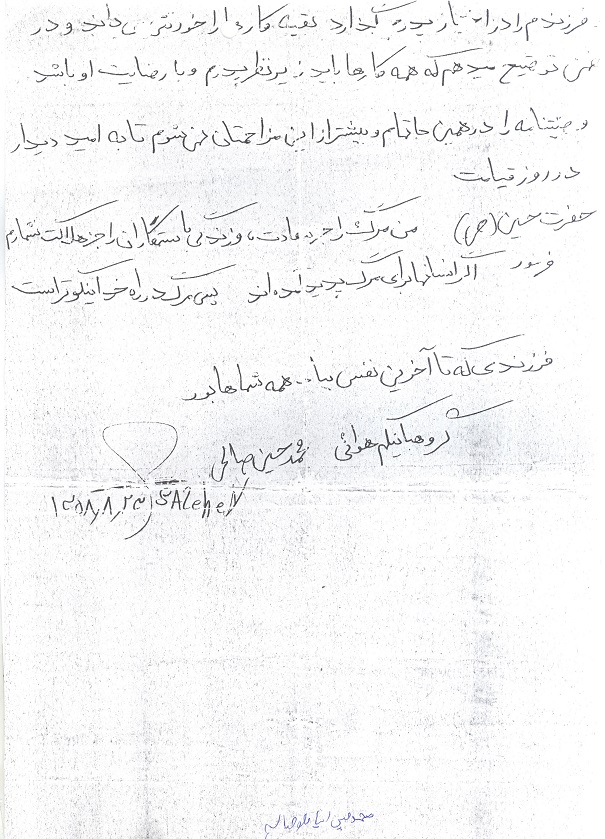 فرزندم را در اختیار پدرم گذارد بقیه کارها را خودتان می‌دانید و در
ضمن توضیح میدهم که همه کارها باید زیر نظر پدرم و با رضایت او باشد
وصیتنامه را در همین جا تمام و بیشتر از این مزاحمتان نمی‌شوم تا به امید دیدار
در روز قیامت
حضرت حسین (ص) من مرگ را جز سعادت، و زندگی با ستمگاران را جز هلاکت نشمارم
فرمود اگر انسانها برای مرگ پدید آمده‌اند پس مرگ در راه خدا نیکوتر است
فرزندی که تا آخرین نفس بیاد همه شماها بود
گروهبانیکم هوائی محمد حسین صالحی
۱۳۵۸٫۸٫۲۳ SALehey